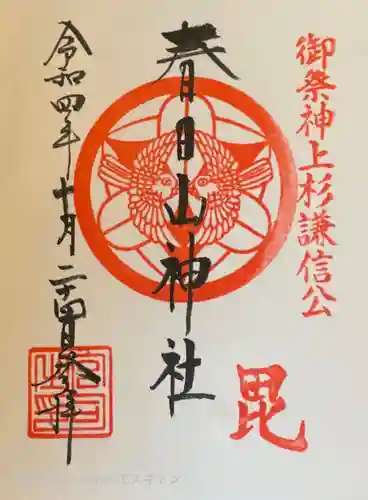 御祭神上杉謙信公
毘
春日山神社
令和四年十月二十四日参拝